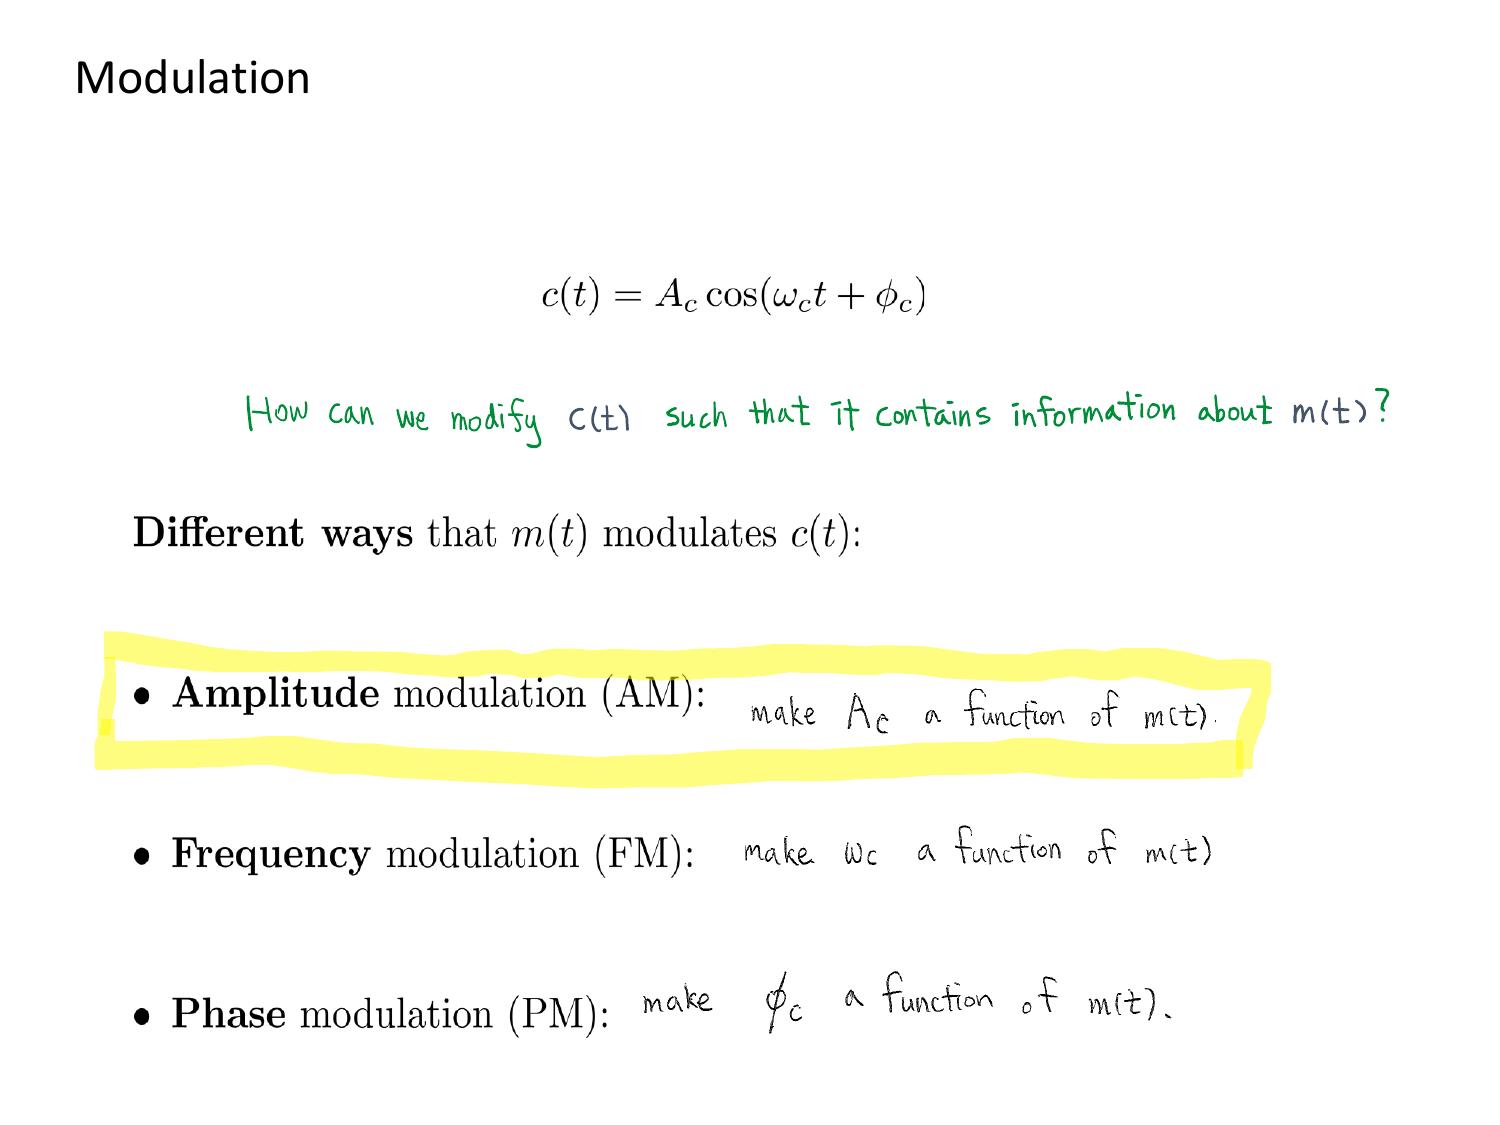 Modulation
c(t) = A_c cos(ω_c t + ϕ_c)
How can we modify c(t) such that it contains information about m(t)?
Different ways that m(t) modulates c(t):
• Amplitude modulation (AM): make A_c a function of m(t).
• Frequency modulation (FM): make ω_c a function of m(t)
• Phase modulation (PM): make ϕ_c a function of m(t).